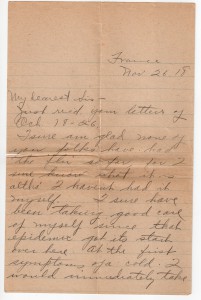 France
Nov. 26, 18
My dearest Sis –
Just recd your letter of
Oct. 18-26.
I sure am glad none of
your folks have had
the flu so far, for I
sure know what it is
altho I havent had it
myself. I sure have
been taking good care
of myself since that
epidemic got its start
over here. At the first
symptom of a cold I
would immediately take